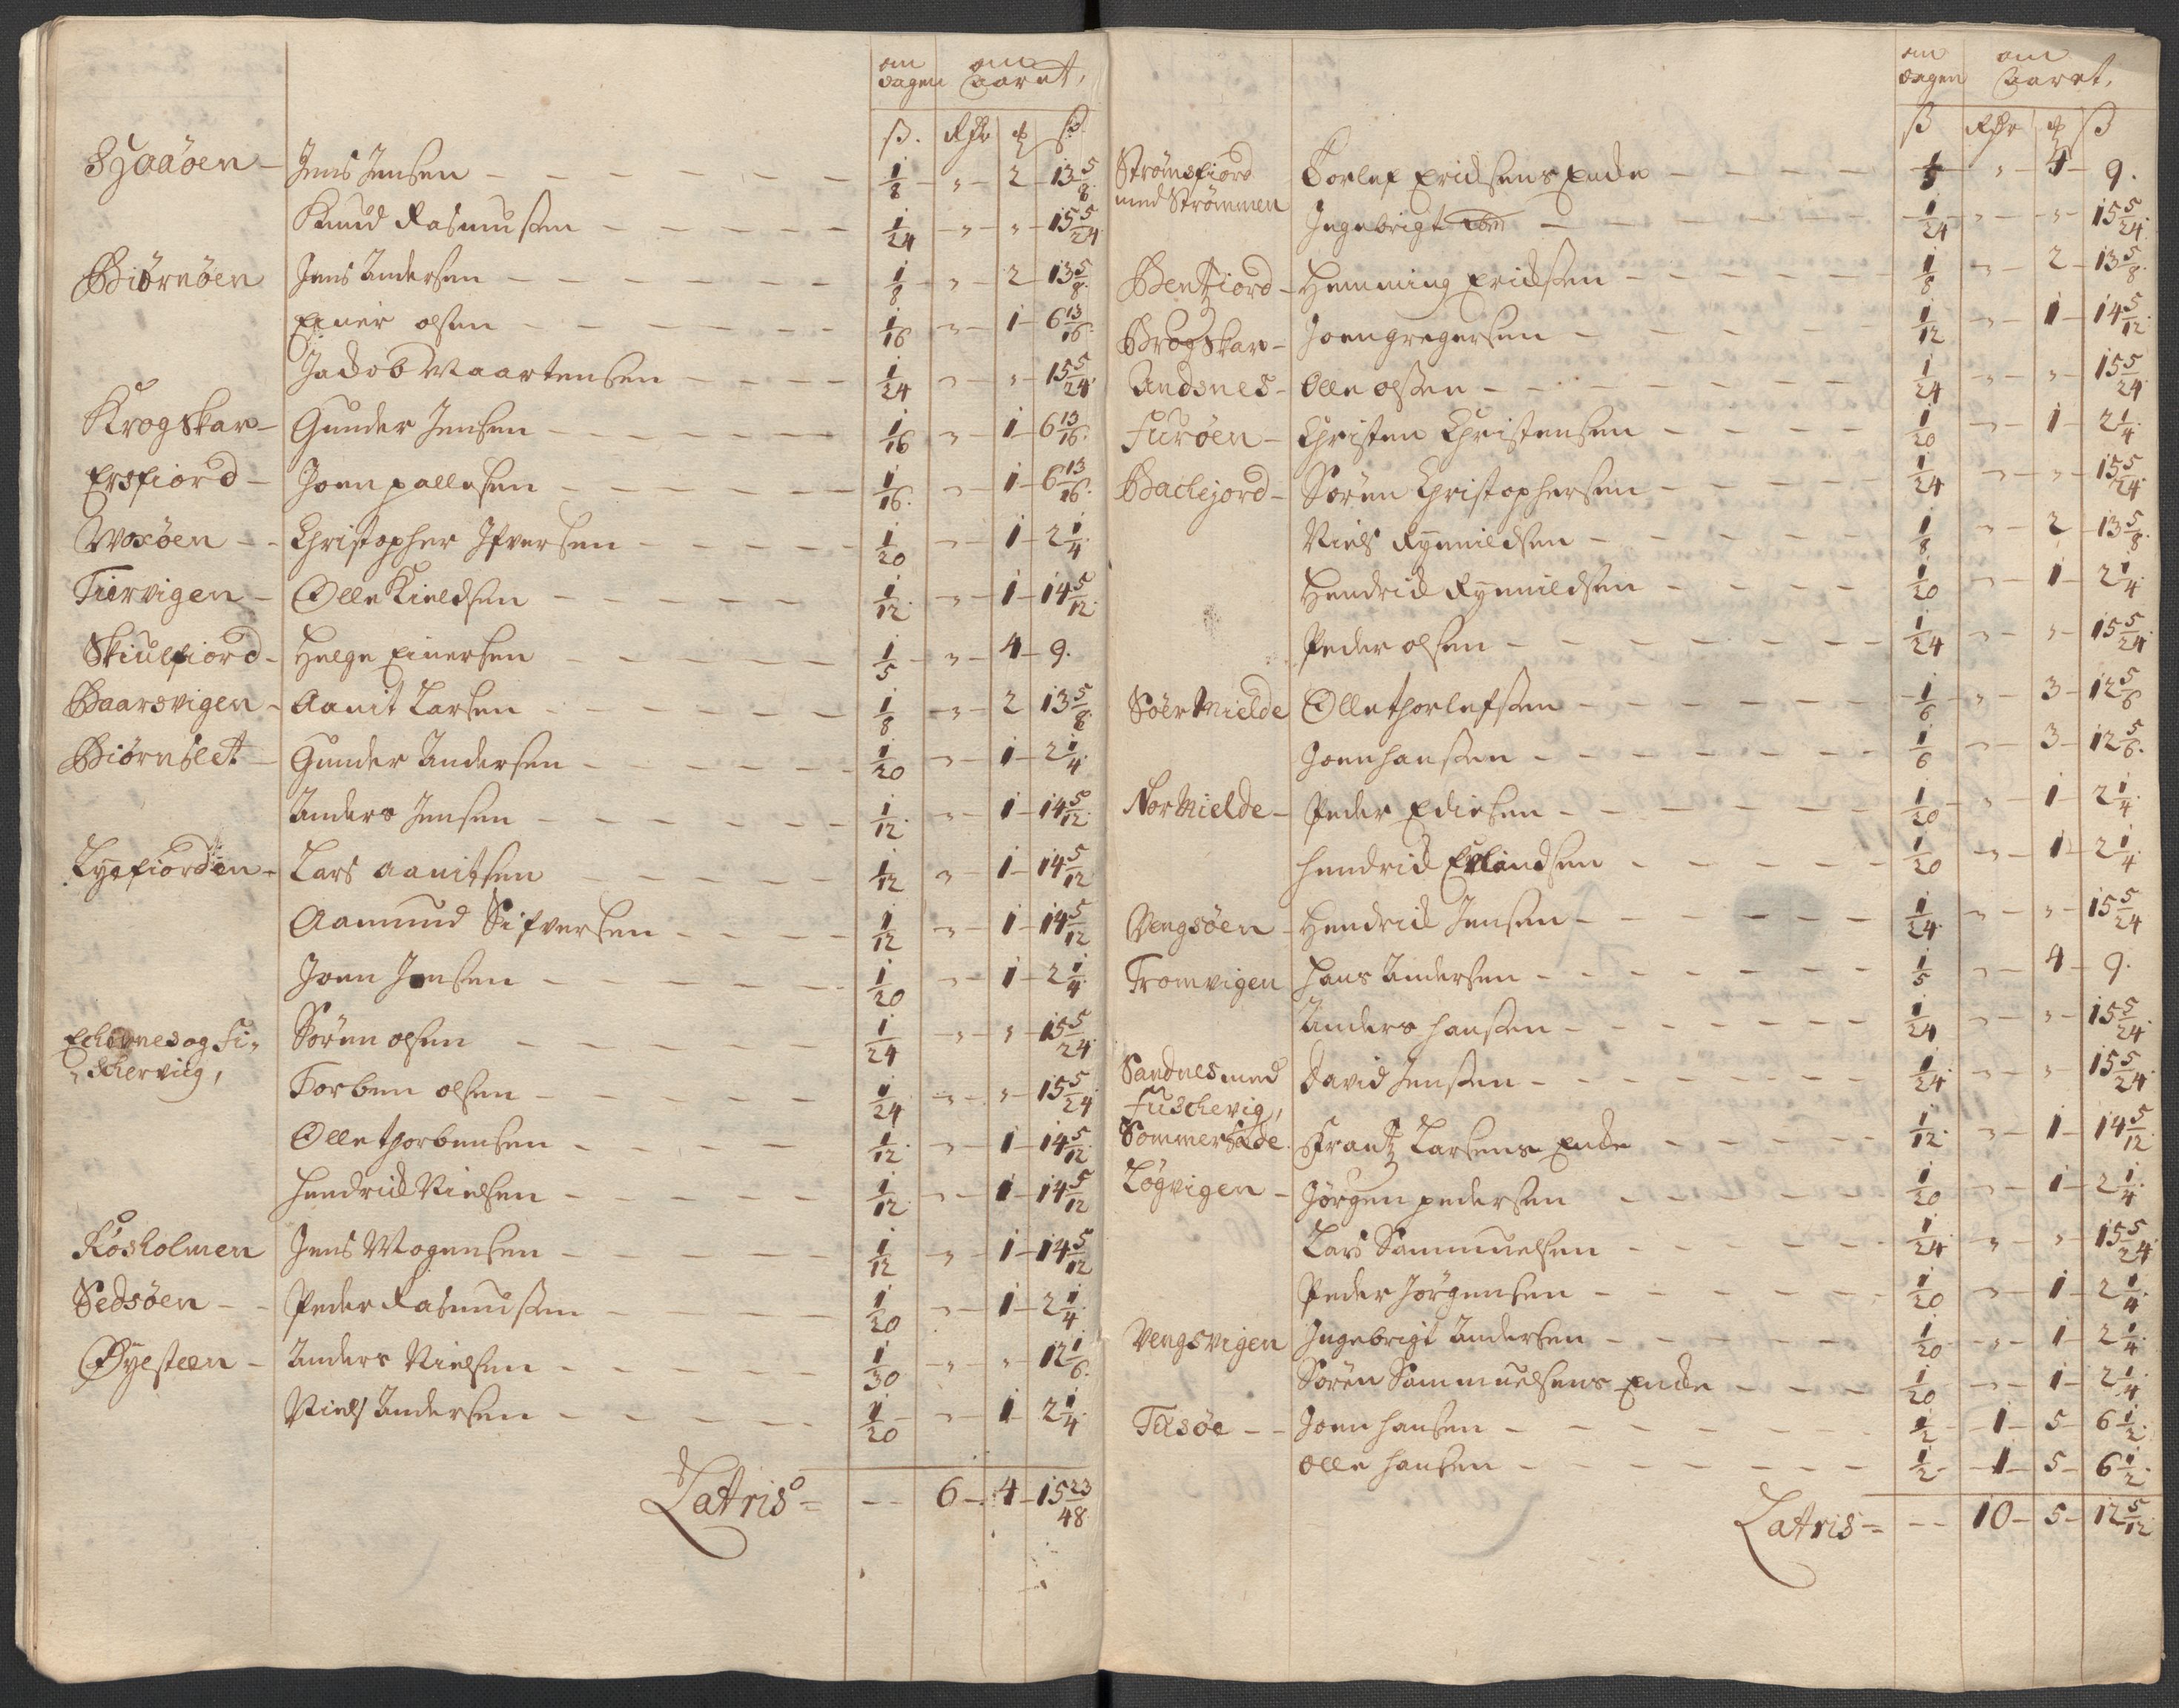 om dagen om Aaret,
ß. Rdr ꝶ ß
Sjaaøen - Jens Jensen - 1/8 - „ - 2 - 13 5/8
Knud Rasmussen - 1/24 - „ - „ - 15 5/24
Biørnøen Jens Andersen - 1/8 - „ - 2 - 13 5/8
Einer olsen - 1/16 - „ - 1 - 6 13/16
Jacob Maartensen - 1/24 - „ - „ - 15 5/24
Krogskar - Gunder Jensen - 1/16 - „ - 1 - 6 13/16
Ersfiord - Joen pallesen - 1/16 - „ - 1 - 6 13/16
Woxøen - Christopher Ifversen - 1/20 - „ - 1 - 2 1/4
Tiervigen - Olle Kieldsen - 1/12 - „ - 1 - 14 5/12
Skiulfiord - Helge Einersen - 1/5 - „ - 4 - 9.
Baarsvigen - Aanit Larsen - 1/8 - „ - 2 13 5/8
Biørnslet - Gunder Andersen - 1/20 - „ - 1 - 2 1/4
Anders Jensen - 1/12 - „ - 1 - 14 5/12
Lyefiorden - Lars Aanitsen - 1/12 „ - 1 - 14 5/12
Aamund Sifversen - 1/12 - „ - 1 - 14 5/12
Joen Jensen - 1/20 - „ - 1 - 2 1/4
og Fi- Søren olsen - 1/24 - „ - „ - 15 5/24
scherviig, Torben olsen - 1/24 - „ - „ - 15 5/24
Olle thorbensen - 1/12 - „ - 1 - 14 5/12
Hendrich Nielsen - 1/12 - „ - 1 - 14 5/12
Røsholmen Jens Mogensen - 1/12 - „ - 1 - 14 5/12
Sedsøen - Peder Rasmussen - 1/20 - „ - 1 - 2 1/4
Øyesteen - Anders Nielsen - 1/30 - „ - „ - 12 1/6
Niels Andersen - 1/20 - „ - 1 - 2 1/4
Latris - 6 - 4 - 15 23/48
om dagen om Aaret,
ß Rdr ꝶ ß
Strømsfiord Torlef Erichsens Enke - 1/5 - „ - 4 - 9.
med Strømmen Ingebrigt - 1/24 - „ - „ - 15 5/24
Bentziord - Hemming Erichsen - 1/8 - „ - 2 - 13 5/8
Brogskar - Joen gregersen - 1/12 - „ - 1 - 14 5/12
Andsnes - Olle olsen - 1/24 - „ - „ - 15 5/24
Furøen - Christen Christensen - 1/20 - „ - 1 - 2 1/4
Bachejord - Søren Christophersen - 1/24 - „ - „ - 15 5/24
Niels Rynnildsen - 1/8 - „ - 2 - 13 5/8
Hendrich Rynnildsen - 1/20 - „ - 1 - 2 1/4
Peder olsen - 1/24 - „ - „ - 15 5/24
Søer Mielde Olle thorlefsen - 1/6 - „ - 3 - 12 5/6
Joen hansen - 1/6 - „ - 3 - 12 5/6
Nor Mielde - Peder Ediesen - 1/20 - „ - 1 - 2 1/4
hendrich Erlandsen - 1/20 - „ - 1 - 2 1/4
Vengsøen - Hendrich Jensen - 1/24 - „ - „ - 15 5/24
Tromvigen Hans Andersen - 1/5 - „ - 4 - 9.
Anders hansen - 1/24 - „ - „ - 15 5/24
Sandnes med David Jensen - 1/24 - „ - „ - 15 5/24
Fuschevig,
Sommersæde Frantz Larsens Enke - 1/12 - „ - 1 - 14 5/12
Løgvigen - Jørgen pedersen - 1/20 - „ - 1 - 2 1/4
Lars Sammuelsen - 1/24 - „ - „ - 15 5/24
Peder Jørgensen - 1/20 - „ - 1 - 2 1/4
Vengsvigen Ingebrigt Andersen - 1/20 - „ - 1 2 1/4
Søren Sammuelsens Enke - 1/20 - „ - 1 - 2 1/4
Tixsøe - Joen hansen - 1/2 - 1 - 5 - 6 1/2
Olle hansen - 1/2 - 1 - 5 - 6 1/2
Latris - 10 - 5 - 12 5/12